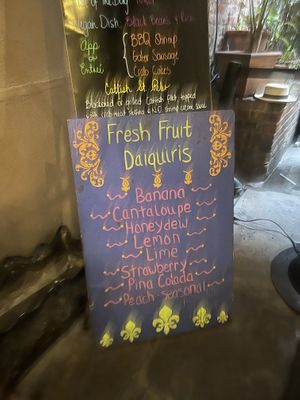 Vegan Dish: Black Beans & Rice
App
or
Entrée
BBQ Shrimp
Gator Sausage
Crab Cakes
Catfish St. Peter
Blackened or grilled Catfish filet, topped
with crab meat
Fresh Fruit
Daiquiris
Banana
Cantaloupe
Honeydew
Lemon
Lime
Strawberry
Pina Colada
Peach-seasonal